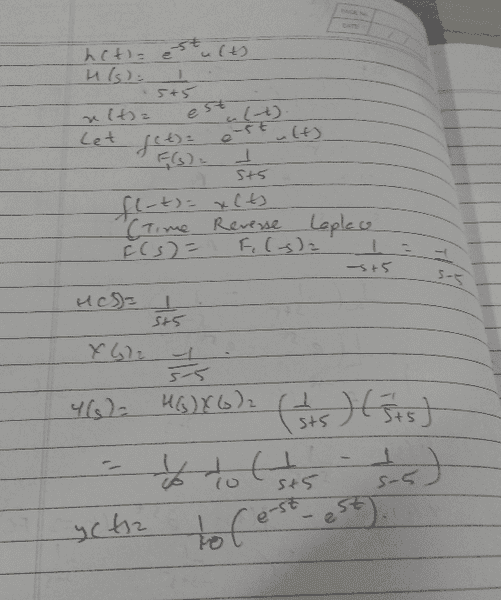 PAGE No.
DATE
h(t) = e^-5t u(t)
H(s) = 1/(s+5)
x(t) = e^5t u(-t)
Let f(t) = e^-5t u(t)
F1(s) = 1/(s+5)
f(-t) = x(t)
(Time Reverse Laplace
F(s) = F1(-s) = 1/(-s+5) = -1/(s-5)
H(s) = 1/(s+5)
X(s) = -1/(s-5).
Y(s) = H(s)X(s) = (1/(s+5))(-1/(s+5))
= 1/10 (1/(s+5) - 1/(s-5))
y(t) = 1/10 (e^-5t - e^5t).